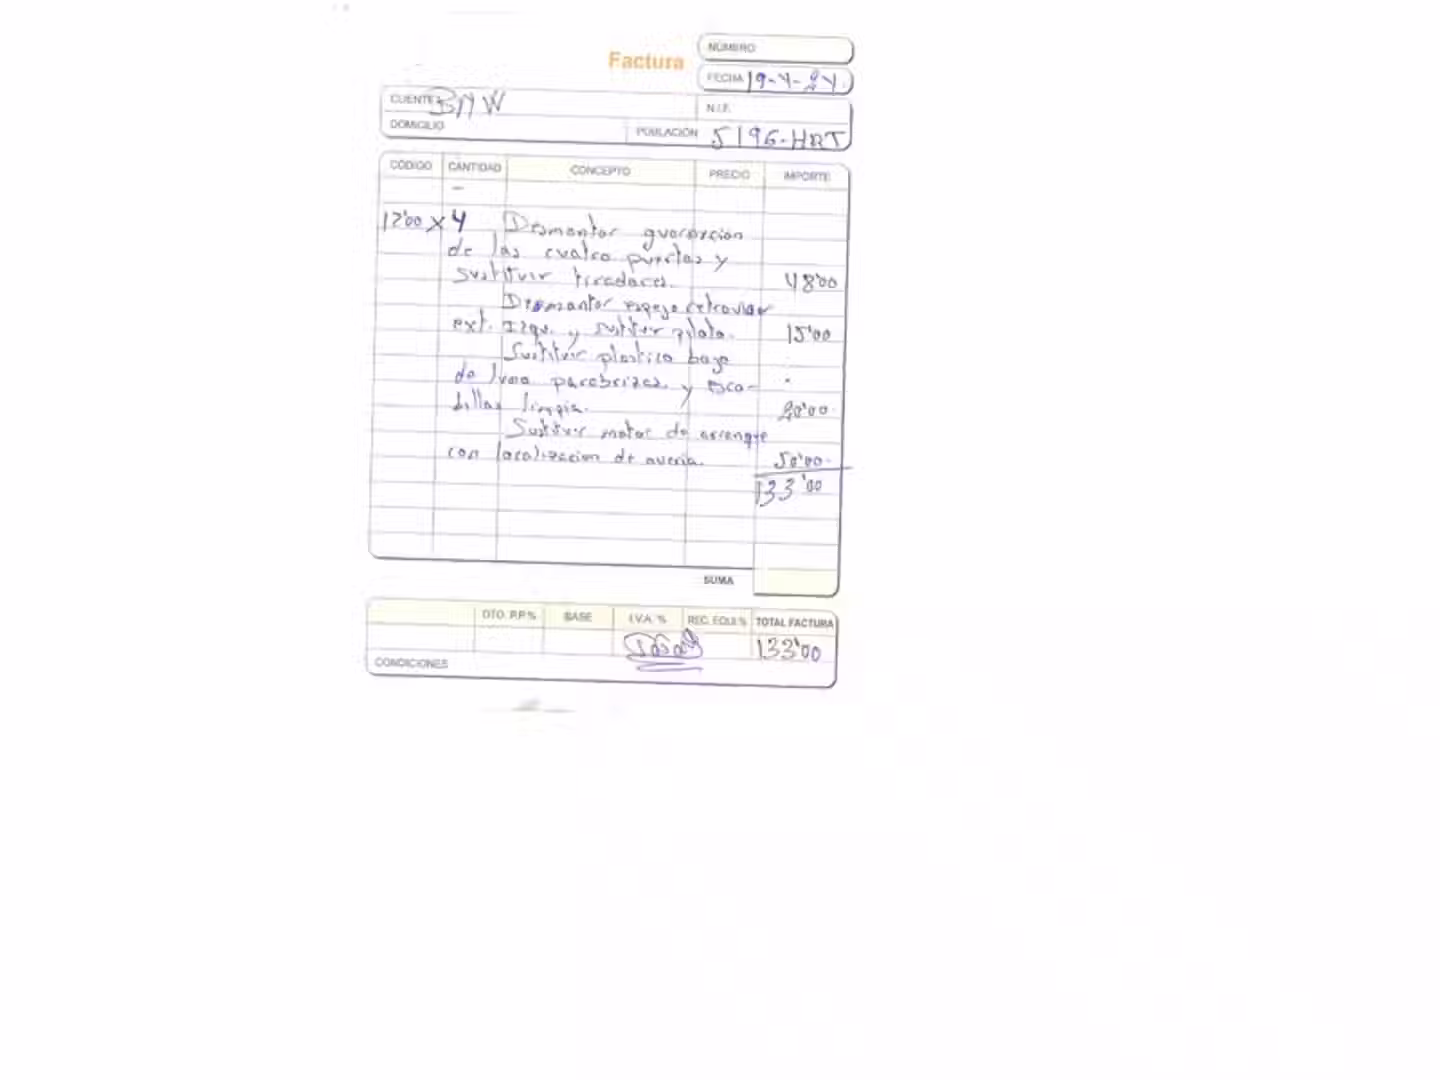 NÚMERO
Factura
FECHA 19-4-24.
CLIENTE BMW
N.I.F.
DOMICILIO
POBLACIÓN 5196-HRT
CÓDIGO CANTIDAD CONCEPTO PRECIO IMPORTE
12'00 x 4 Desmontar guarnicion
de las cuatro puertas y
sustituir tiradores. 48'00
Desmontar espejo retrovisor
ext. Izqu. y sustituir piloto. 15'00
Sustituir plastico bajo
de luna parabrizas y esco-
billas limpia. 20'00.
Sustituir motor de arranque
con localizacion de averia. 50'00.
133'00
SUMA
DTO. P.P.% BASE I.V.A. % REC. EQUI.% TOTAL FACTURA
133'00
CONDICIONES